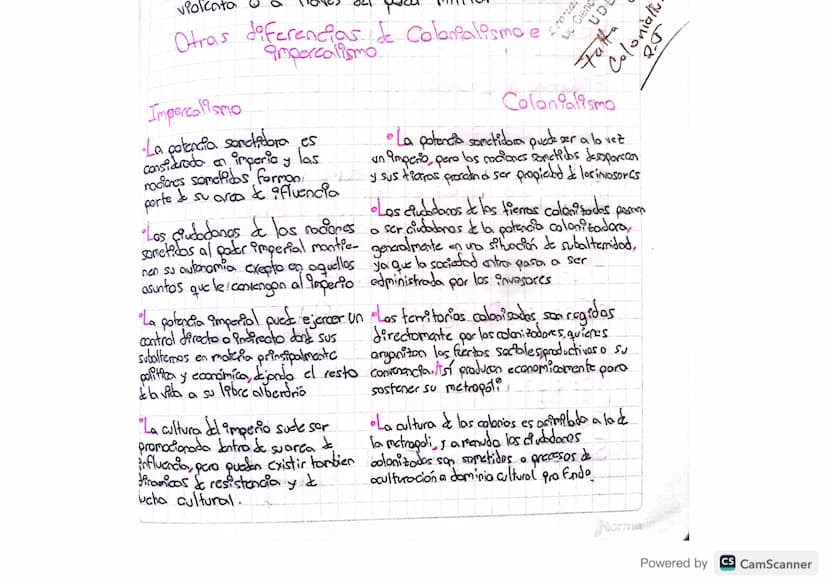 violenta o a traves del poder
Otras diferencias de Colonialismo e
imperealismo
Falta
Colonialismo
Imperealismo
•La potencia sometidora es
considrado en imperio y las
naciones sometidas forman
parte de su area de ifluencia
•Los ciudadanos de las naciones
sometidas al poder imperial mantie-
nen su autonomia exepto en aquellos
asuntos que le contengan al imperio
•La potencia imperial puede ejercer un
control directo o indirecto sobre sus
subalternos en materia principalmente
politica y económica, djando el resto
de la vida a su libre alberdrio
•La cultura del imperio suele ser
promocionada dentro de su area de
influencia, pero pueden existir tambien
dinamicas de resistencia y de
lucha cultural.
Colonialismo
•La potencia sometidora puede ser a la vez
un imperio, pero las naciones sometidas desaparecen
y sus tierras procedna a ser propiedad de los invasores
•Los ciudadanos de las tierras colonizadas pasan
a ser ciudadanos de la potencia colonizadora,
generalmente en una situación de subalternidad,
ya que la sociedad entra pasa a ser
administrada por los invasores
•Los territorios colonisados son regidos
directamente por los colonizadores, quienes
organizan las fuerzas sociales, productivas a su
conveniencia. Así producen economicamente para
sostener su metropoli
•La cultura de las colonias es asimilada a la de
la metropoli, y a menudo los ciudadanos
colonizados son sometidos a procesos de
aculturación o dominio cultural profundo.
Norma
Powered by CS CamScanner